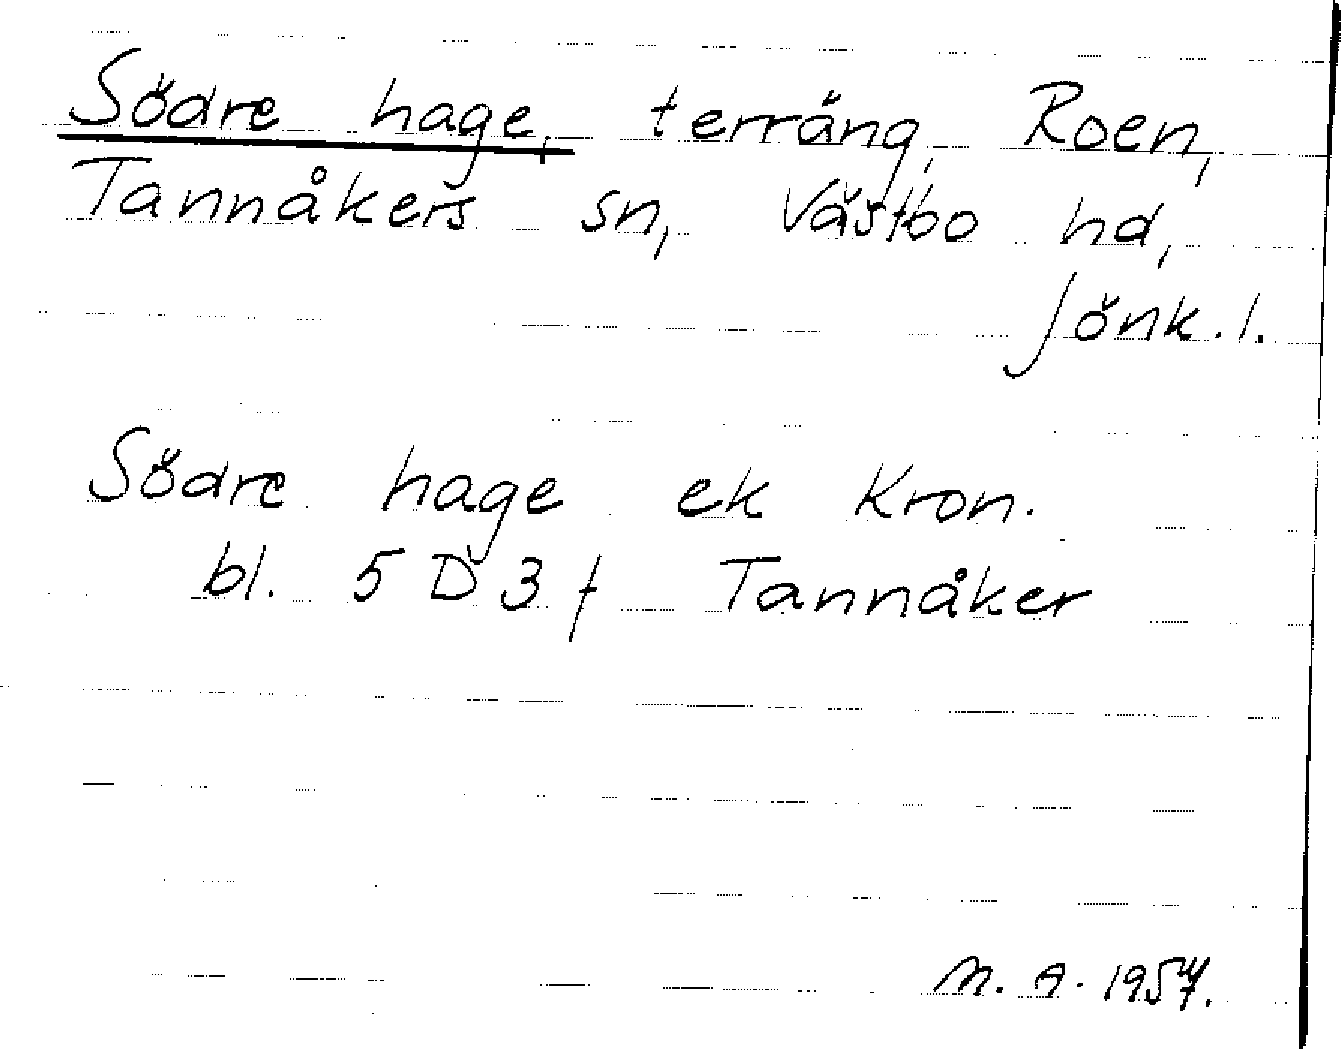 Södre hage, terräng, Roen,
Tannåkers sn, Västbo hd,
Jönk. l.
Södre hage ek Kron.
bl. 5 D 3 f Tannåker
M. A. 1957.